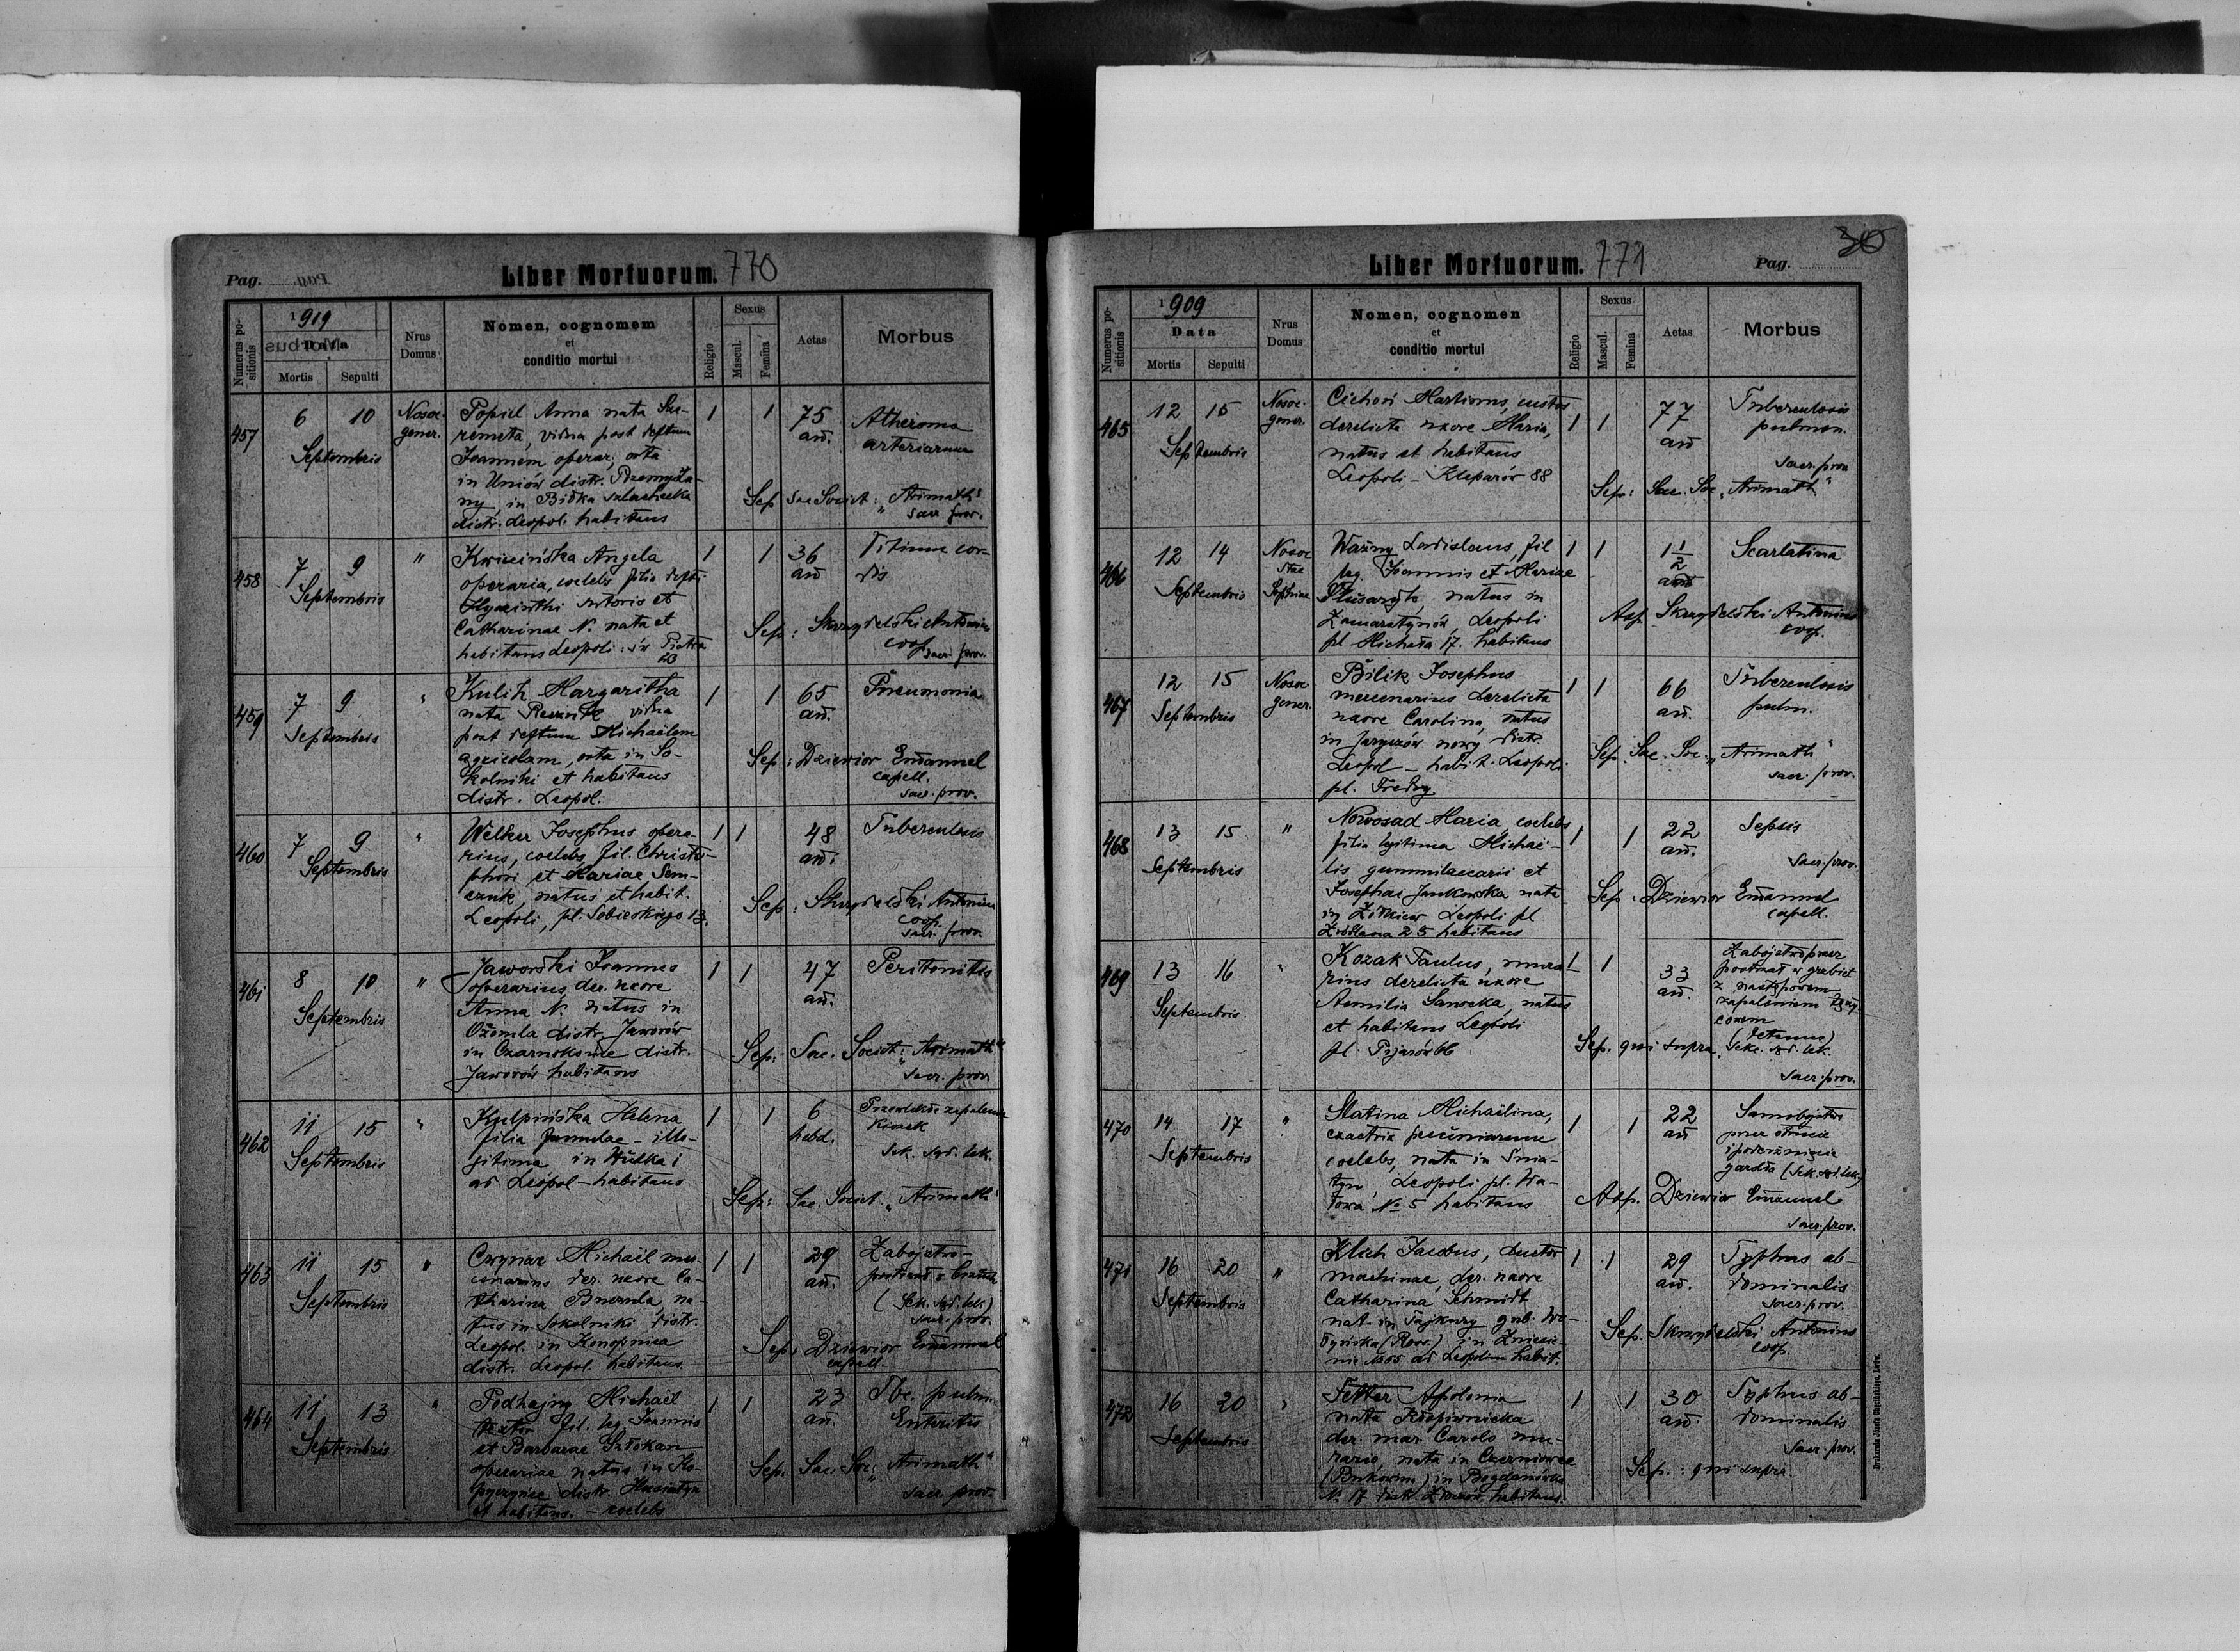 Pag.
Liber Mortuorum. 770
Numerus positionis
1919
Data
Mortis
Sepulti
Nrus Domus
Nomen, cognomem
et
conditio mortui
Religio
Sexus
Mascul.
Femina
Aetas
Morbus
457
6 10
Septembris
Nosoc.
gener.
Popiel Anna nata Su-
remeta, vidua post deftum
Joannem operar; orta
in Uniów distr. Przemyśla-
ny, in Biłka szlachecka
distr. Leopol. habitans
1 1
75
an.
Atheroma
arteriarum
Sep. Sac. Societ: "Arimath"
sacr. prov.
458
7 9
Septembris
"
Kwiecińska Angela
operaria, coelebs filia defti
Hyacinthi sutoris et
Catharinae N. nata et
habitans Leopoli: św Piotra
23
1 1
36
an
Vitium cor-
dis
Sep: Skrzydelski Antonius
coop.
sacr. prov.
459
7 9
Septembris
"
Kulik Margaritha
nata vidua
post deftum Michaëlem
agricolam, orta in So-
kolniki et habitans
distr. Leopol.
1 1
65
an.
Pneumonia
Sep: Dziewior Emanuel
capell.
sacr. prov.
460
7 9
Septembris
"
Welker Josephus opera-
rius, coelebs, fil. Christo-
phori et Mariae Sem-
czuk, natus et habit.
Leopoli, pl. Sobieskiego 13.
1 1
48
an.
Tuberculosis
Sep: Skrzydelski Antonius
coop.
sacr. prov.
461
8 10
Septembris
"
Jaworski Joannes
operarius, der. uxore
Anna N. natus in
Ożomla distr. Jaworów
in distr.
Jaworów habitans
1 1
47
an.
Peritonitis
Sep: Sac. Societ: "Arimath"
sacr. prov.
462
11 15
Septembris
"
Kulpińska Helena
filia famulae - ille-
gitima in Wulka
ad Leopol - habitans
1 1
6
hebd.
Przewlekłe zapalenie
kiszek
Sek. sąd. lek.
Sep: Sac. Societ. "Arimath"
463
11 15
Septembris
"
Michaël mer-
cenarius der. uxore Ca-
tharina na-
tus in Sokolniki distr.
Leopol. in Konopnica
distr. Leopol. habitans
1 1
29
an.
Zabójstwo -
postrzał
(Sek. sąd. lek)
sacr. prov.
Sep: Dziewior Emanuel
capell.
464
11 13
Septembris
"
Podhajny Michaël
fil. leg. Joannis
et Barbarae
operariae natus in Ko-
pyczyńce distr. Husiatyn
et habitans. - coelebs
1 1
23
an.
Tbc. pulm.
Enteritis
Sep. Sac. Soc: "Arimath"
sacr. prov.
30
Liber Mortuorum. 771
Pag.
Numerus positionis
1909
Data
Mortis
Sepulti
Nrus Domus
Nomen, cognomen
et
conditio mortui
Religio
Sexus
Mascul.
Femina
Aetas
Morbus
465
12 15
Septembris
Nosoc.
gener.
Cichoń Martinus, custos
derelicta uxore Maria,
natus et habitans
Leopoli - Kleparów 88
1 1
77
an
Tuberculosis
pulmon.
sacr. prov
Sep: Sac. Soc "Arimath"
466
12 14
Septembris
Nosoc
Stae
Sophiae
Ważny Ladislaus, fil
leg. Joannis et Mariae
Ślusaryk natus in
Zamarstynów, Leopoli
pl Michała 17. habitans
1 1
1 1/2
an
Scarlatina
Asp. Skrzydelski Antonius
coop.
467
12 15
Septembris
Nosoc
gener.
Bilik Josephus
mercenarius derelicta
uxore Carolina, natus
in Jaryczów nowy distr.
Leopol - habit. Leopoli
pl. Fredry
1 1
66
an.
Tuberculosis
pulm.
Sep. Sac. Soc: "Arimath"
sacr. prov.
468
13 15
Septembris
"
Nowosad Maria, coelebs
filia legitima Michaë-
lis gummilaecarii et
Josephae Jankowska nata
in Żółkiew Leopoli pl
Źródlana 25 habitans
1 1
22
an.
Sepsis
sacr. prov.
Sep: Dziewior Emanuel
capell.
469
13 16
Septembris
"
Kozak Paulus, mura-
rius derelicta uxore
Aemilia Sanocka, natus
et habitans Leopoli
pl. Pijarów 66
1 1
33
an.
Zabójstwo przez
postrzał w grzbiet
z następowem
zapaleniem
(Tetanus)
Sek. sąd. lek.
sacr. prov.
Sep. qui supra.
470
14 17
Septembris
"
Slatina Michaëlina,
exactrix pecuniarum
coelebs, nata in Śnia-
tyn, Leopoli pl. Wa-
łowa No 5 habitans
1 1
22
an
Samobójstwo
przez otrucie
i poderżnięcie
gardła (Sek. sąd. lek.)
Asp. Dziewior Emanuel
sacr. prov.
471
16 20
Septembris
"
Klich Jacobus, ductor
machinae, der. uxore
Catharina Schmidt
nat. in gub. Wo-
łyńska (Ross.) in Zniesie-
nie ad Leopolim habit.
1 1
29
an.
Typhus ab-
dominalis
sacr. prov.
Sep. Skrzydelski Antonius
coop.
472
16 20
Septembris
"
Fetter Apolonia
nata Kropiwnicka
der. mar. Carolo mu-
rario, nata in Czerniowce
(Bukowina) in Bogdanówka
No 17 distr. habitans.
1 1
30
an.
Typhus ab-
dominalis
sacr. prov.
Sep.: qui supra.